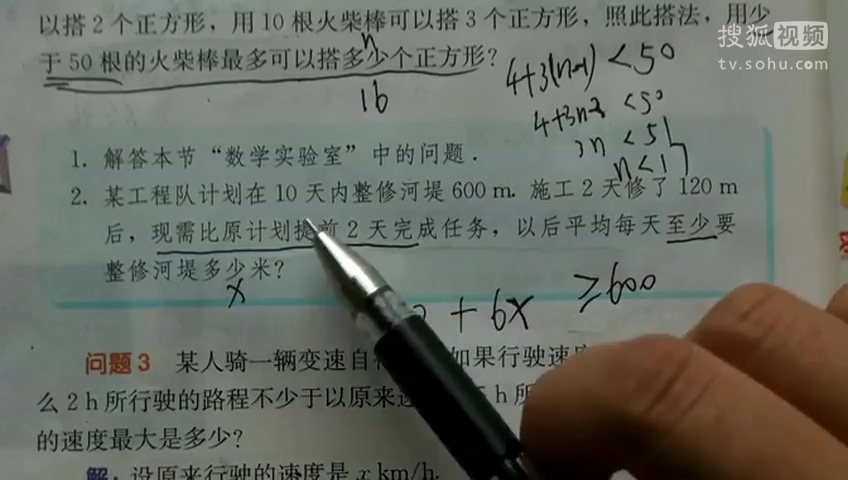 以搭 2 个正方形，用 10 根火柴棒可以搭 3 个正方形，照此搭法，用少
于 50 根的火柴棒最多可以搭多少个正方形？
n
16
4+3(n-1) < 50
4+3n-3 < 50
3n < 51
n < 17
搜狐视频
tv.sohu.com
1. 解答本节“数学实验室”中的问题．
2. 某工程队计划在 10 天内整修河堤 600 m. 施工 2 天修了 120 m
后，现需比原计划提前 2 天完成任务，以后平均每天至少要
整修河堤多少米？
x
+ 6x ≥ 600
问题 3 某人骑一辆变速自 如果行驶速
么 2 h 所行驶的路程不少于以原来 h 所
的速度最大是多少？
解：设原来行驶的速度是 x km/h.